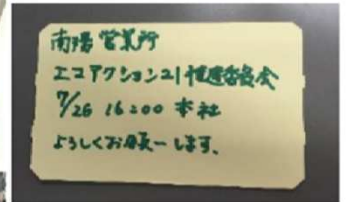 南陽営業所
エコアクション21推進委員会
7/26 16:00 本社
よろしくお願いします。